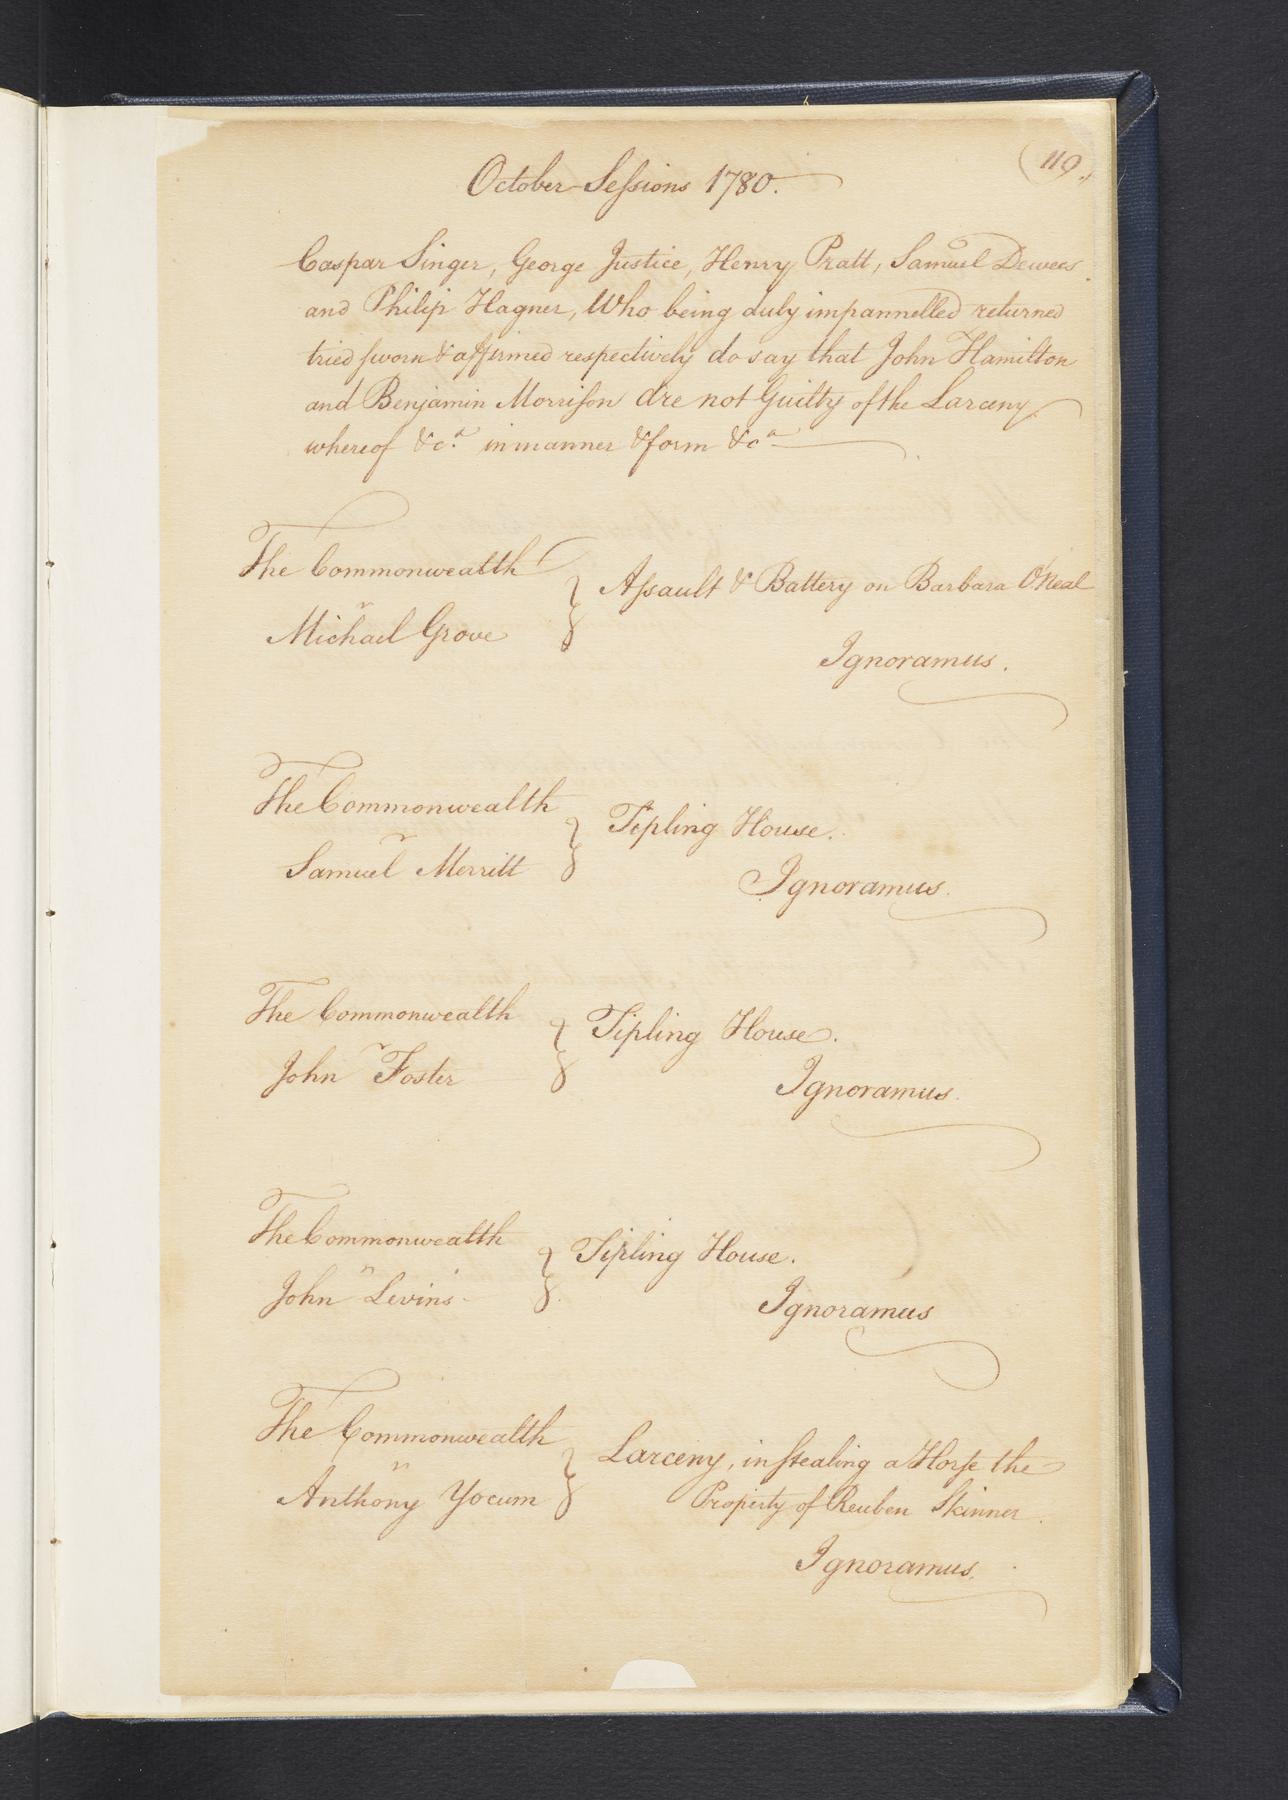 119.
October Sessions 1780.
Caspar Singer, George Justice, Henry Pratt, Samuel Dewees
and Philip Hagner, Who being duly impannelled returned
tried sworn & affirmed respectively do say that John Hamilton
and Benjamin Morrison are not Guilty of the Larceny
whereof &ca. in manner & form &ca
The Commonwealth
v
Michael Grove
Assault & Battery on Barbara O'Neal
Ignoramus.
The Commonwealth
v
Samuel Merritt
Tipling House.
Ignoramus.
The Commonwealth
v
John Foster
Tipling House.
Ignoramus.
The Commonwealth
v
John Levins
Tipling House.
Ignoramus
The Commonwealth
v
Anthony Yocum
Larceny, in stealing a Horse the
Property of Reuben Skinner.
Ignoramus.